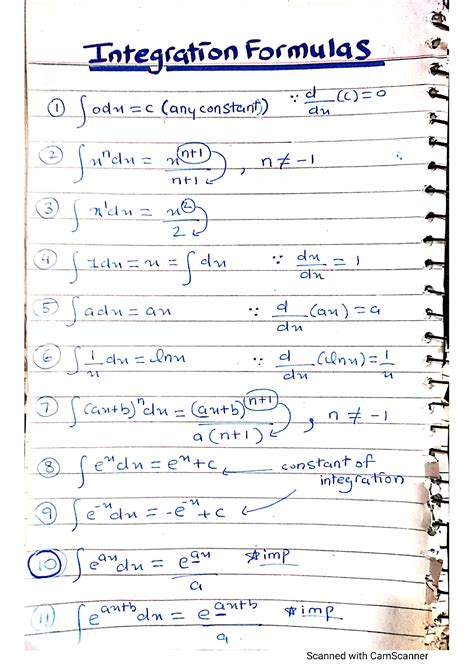 Integration Formulas
① ∫odx = c (any constant) ∵ d/dx (c) = 0
② ∫xⁿdx = x^(n+1)/n+1 , n ≠ -1
③ ∫x¹dx = x²/2
④ ∫1dx = x = ∫dx ∵ dx/dx = 1
⑤ ∫adx = ax ∵ d/dx (ax) = a
⑥ ∫1/x dx = lnx ∵ d/dx (lnx) = 1/x
⑦ ∫(ax+b)ⁿdx = (ax+b)^(n+1)/a(n+1) , n ≠ -1
⑧ ∫eˣdx = eˣ+c ← constant of
integration
⑨ ∫e⁻ˣdx = -e⁻ˣ+c ←
⑩ ∫e^ax dx = e^ax/a *imp
⑪ ∫e^ax+b dx = e^ax+b/a *imp
Scanned with CamScanner